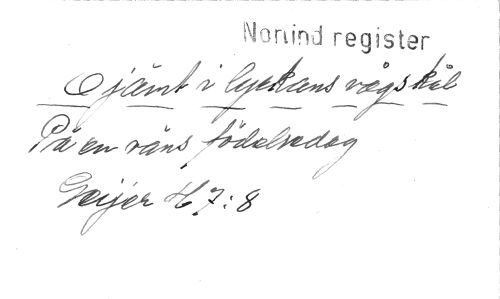 Nonind register
Ojämt i lyckans vågskål
På en väns födelsedag
Geijer H 7:8